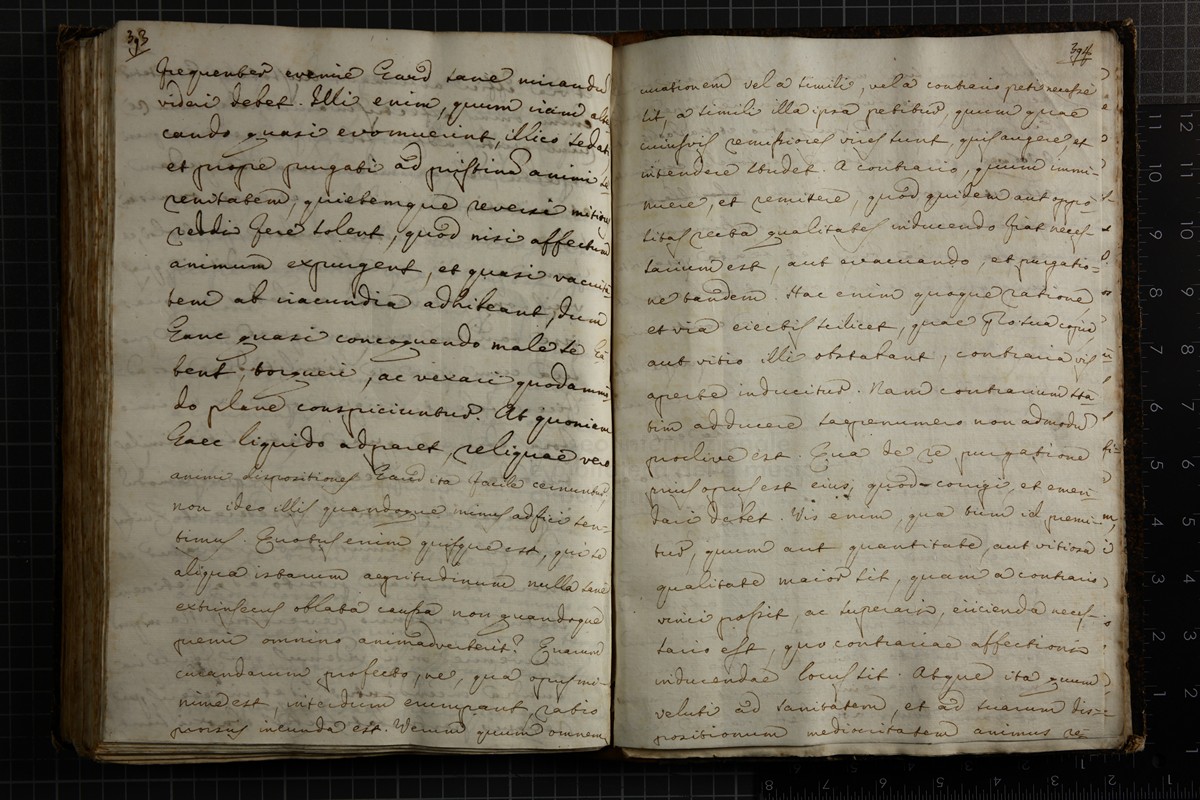 393
frequenter evenit haud sane mirandū
videri debet. Illi enim, quum iram
cando quasi evomuerint, illico sedati
et prope purgati ad pristinā animi se-
renitatem, quietemque reversi mitiores
reddi fere solent, quod nisi affectum
animum expurgent, et quasi vacuita-
tem ab iracundia adhibeant, dum
hanc quasi concoquendo male se ha-
bent, torqueri, ac vexari quodammo-
do plane conspiciuntur. At quoniam
haec liquido adparet, reliquae vero
animi dispositiones haud ita facile cernuntur,
non ideo illis quandoque minus adfici sen-
timus. Quotus enim quisque est, qui se
aliqua istarum aegritudinum nulla sane
extrinsecus oblata caussa non quandoque
premi omnino animadverterit? Quarum
curandarum profecto, ne, qua opus mi-
nime est, interdum erumpant, ratio
prorsus ineunda est. Verum quum omnem
394
mutationem vel a simili, vel a contrario peti necesse
sit, a simili illa ipsa petitur, quum quae
cuiusvis remissiores vires sunt, quis augere et
intendere studet. A contrario, quum immi-
nuere, et remittere, quod quidem aut oppo-
sitas recta qualitates inducendo fiat neces-
sarium est, aut evacuando, et purgatio-
ne tandem. Hac enim quoque ratione
et via eiectis scilicet, quae pro sua copia
aut vitio illi obstabant, contraria vis
aperte inducitur. Nam contrarium sta-
tim adducere saepenumero non admodū
proclive est. Qua de re purgatione
prius opus est eius, quod corrigi, et emen-
dari debet. Vis enim, qua tum id premi-
tur, quum aut quantitate, aut vitiosa
qualitate maior sit, quam a contrario
vinci possit, ac superari, eiicienda neces-
sario est, quo contrariae affectionis
inducendae locus sit. Atque ita quum
veluti ad sanitatem, et ad suarum dis-
positionum mediocritatem animus re-